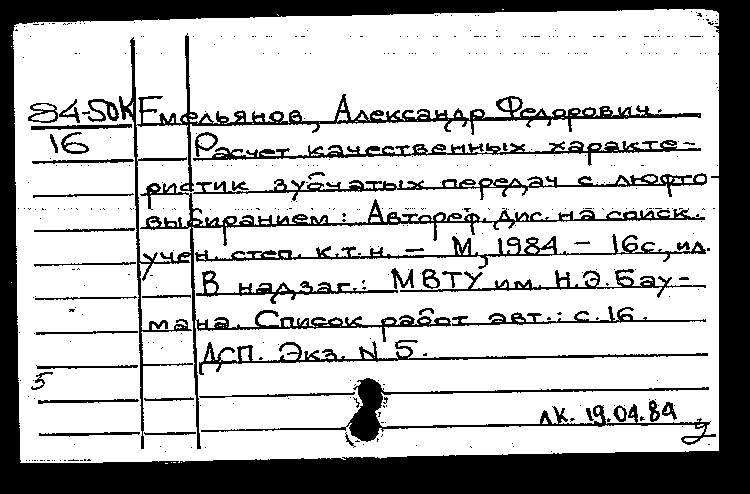 84-50К Емельянов, Александр Федорович.
16 Расчет качественных характе-
ристик зубчатых передач с люфто-
выбиранием: Автореф. дис. на соиск.
учен. степ. к.т.н. – М., 1984. – 16с., ил.
В надзаг.: МВТУ им. Н.Э.Бау-
мана. Список работ авт.: с.16.
ДСП. Экз. N 5.
5
лк. 19.04.84